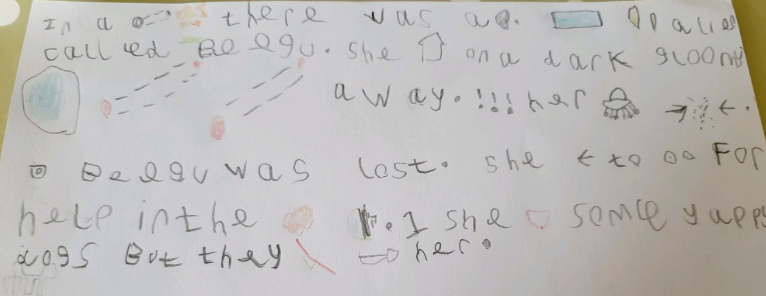 In a there was a
called Beegu. she on a dark gloomy
away.!!! her
Beegu was lost. she to go For
help in the she some yappy
dogs But they her.